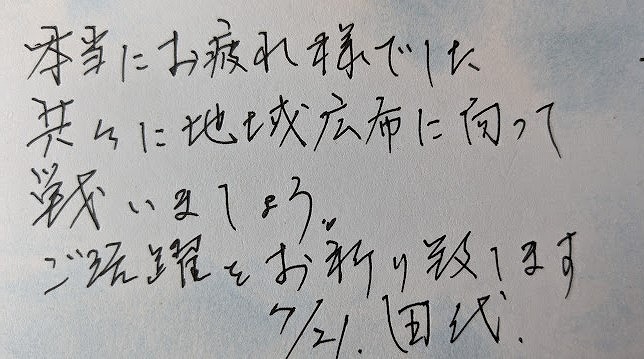 本当にお疲れ様でした
共々に地域広布に向って
戦いましょう。
ご活躍をお祈り致します
7/21. 田代.